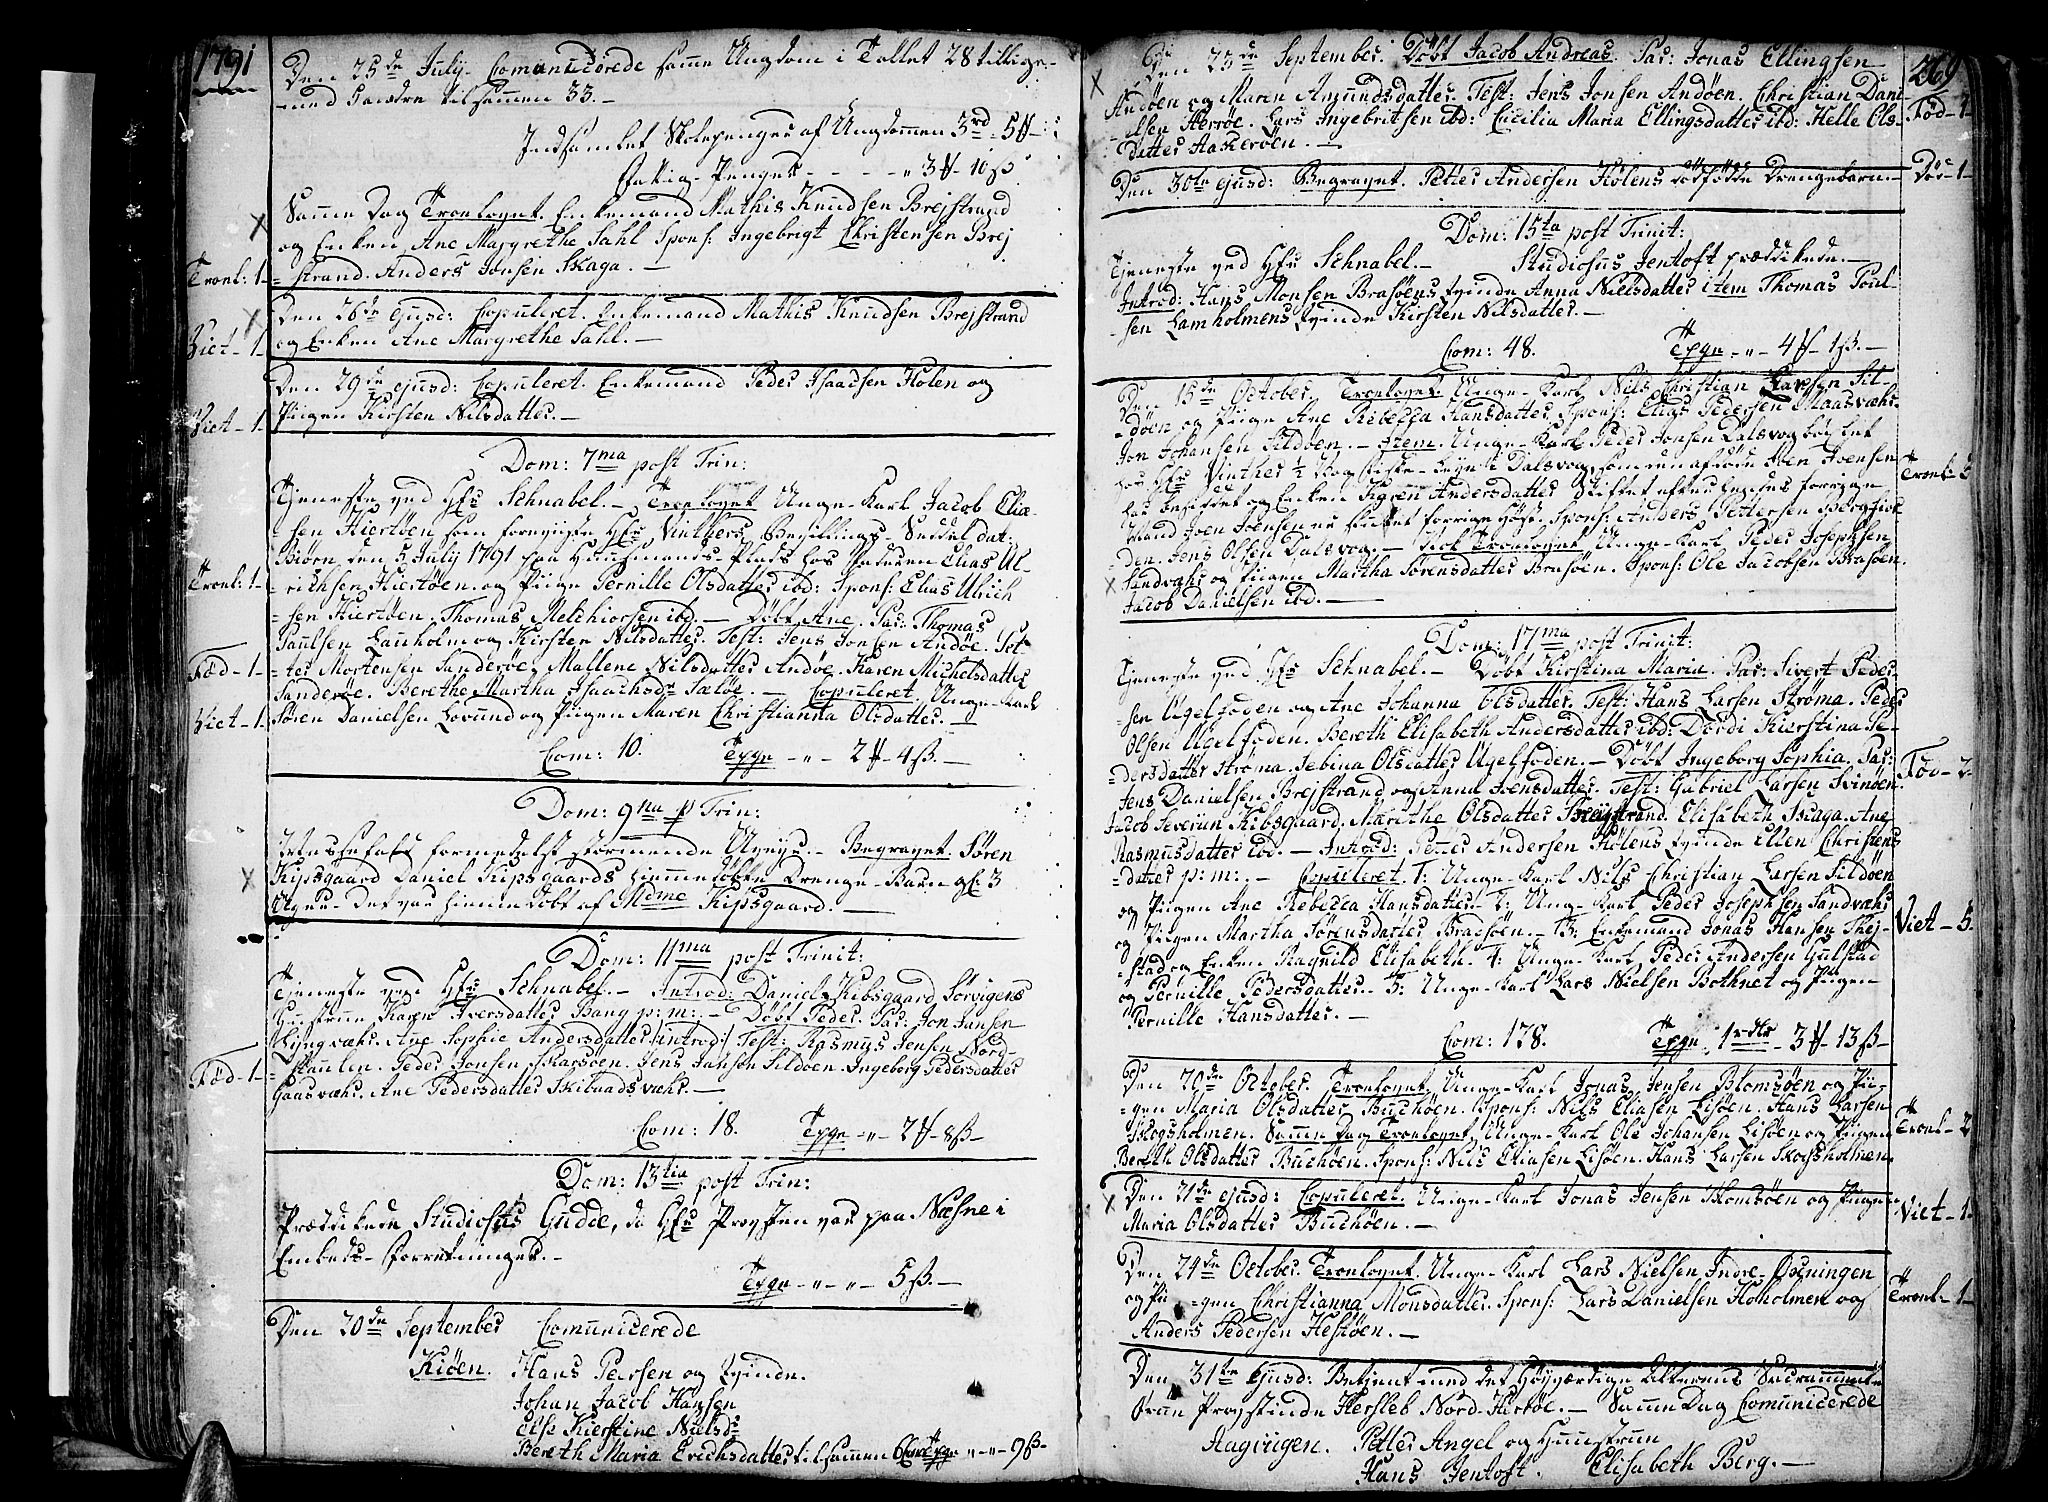 1791
Den 25de July. Comunicerede samme Ungdom i Tallet 28 tillige-
med Hans tilsammen 33.-
Indsamlet Skolepenger af Ungdommen 3rd - 5 ₶
Fattig-Penger - - - - " 3 ₶ - 10 ß
Samme Dag Trolovet. Enkemand Mathis Knudsen Brejstrand
og Enken Ane Margrethe Sahl Spons: Ingebrigt Christensen Brej
Trool: 1- =strand. Anders Jonsen Skaga.-
Den 26de ejusd: Copuleret. Enkemand Mathis Knudsen Brejstrand
Viet - 1- og Enken Ane Margrethe Sahl.-
Den 29de ejusd: Copuleret. Enkemand Peder Isaacsen Holen og
Viet - 1- Piigen Kirsten Nilsdatter.-
Dom: 7ma post Trin:
Tjeneste ved Hr Schnabel.- Trolovet Unge-Karl Jacob Elia-
sen Hiertøen som foreviiste Hr Vinthers Bevillings-Seddel dat:
Biørn den 5 July 1791 paa Huusmands-Plads hos Faderen Elias Ul-
Trool: 1- =richsen Hiertøen. og Piige Pernille Olsdatter ibd: Spons: Elias Ulrich
=sen Hiertøen. Thomas Melchiorsen ibd.- Døbt Ane. Par: Thomas
Paulsen Lamholm og Kirsten Nilsdatter. Test: Jens Jonsen Andøe. Pet-
Fød - 1- =ter Mortensen Sanderøe. Mallene Nilsdatter Andøe. Karen Michelsdatter
Sanderøe. Berethe Martha Isaachsdr Sæløe.- Copuleret. Unge-Karl
Viet - 1- Søren Danielsen Lovund og Piigen Maren Christianna Olsdatter.-
Com: 10. Expn - " - 2 ₶ - 4 ß.-
Dom: 9na p Trin:
Messefald formedelst stormende Uveyr.- Begravet. Søren
Kipsgaard Daniel Kipsgaards hiemmedøbte Drenge-Barn gl: 3
Uger- Det var hiemmedøbt af Mdme Kipsgaard.-
Dom: 11ma post Trinit:
Tjeneste ved Hr Schnabel.- Introd: Daniel Kibsgaard Sørvigens
Hustrue Karen Iversdatter Bang p: m:.- Døbt Peder. Par: Jon Jansen
Lyngvæhr. Ane Sophie Andersdatter /:introd:/ Test: Rasmus Jensen Nord-
Fød - 1- =staulen. Peder Jonsen Skarsøen. Jens Janson Sildøen. Ingeborg Pedersdatter
Gaasvæhr. Ane Pedersdatter Skibaadsvæhr.-
Com: 18. Expn - " - 2 ₶ - 8 ß -
Dom: 13tia post Trin:
Prædikede Studiosus Gudde, da Hr Provsten var paa Næsne i
Embeds-Forretninger.-
Expn - " - " - 5 ß.-
Den 20de September Comunicerede
Kiøen. Hans Persen og Qvinde.
Johan Jacob Hansen
Else Kierstine Nielsdr
Bereth Maria Erichsdatter tilsammen Expn " - " - 96 ß-
269
Den 23de September. Døbt Jacob Andreas. Par: Jonas Ellingsen
Andøen og Maren Amundsdatter. Test: Jens Jonsen Andøen. Christian Dani-
=elsen Herrøe. Lars Ingebritsen ibd: Cecilia Maria Ellingsdatter ibd: Helle Ols- Fød - 1
datter Hakerøen.-
Den 30te ejusd: Begravet. Petter Andersen Holens dødfødde Drengebarn.- Dør - 1-
Dom: 15ta post Trinit:
Tjeneste ved Hr Schnabel.- Studiosus Jentoft prædikede.-
Introd: Hans Monsen Brasøens Qvinde Anna Nielsdatter item Thomas Poul-
sen Lamholmens Qvinde Kirsten Nilsdatter.-
Com: 48. Expn - " - 4 ₶ - 1 ß.-
Den 15de October. Trolovet. Unge-Karl Nils Christian Larsen Sil-
=døen og Piige Ane Rebecca Hansdatter. Spons: Elias Pedersen Maasvæhr.
Jon Johansen Sildøen.- Item. Unge-Karl Peder Jonsen Dalsvog
hos Hr Vinther ½ Vog Fiske-Leje i Dalsvog, som den afdøde Joen Joensen Trool: 3
har besiddet og Enken Sigren Andersdatter Skiftet efter hendes forrige
Mand Joen Joensen er sluttet forrige Høst. Spons: Anders Pettersen Bergfior-
den. Jens Olsen Dalsvog.- Item Trolovet. Unge-Karl Peder Josephsen
Sandvæhr og Piigen Martha Sørensdatter Brasøen. Spons: Ole Jacobsen Brasøen.
Jacob Danielsen ibd.-
Dom: 17ma post Trinit:
Tjeneste ved Hr Schnabel.- Døbt Kirstina Maria. Par: Sivert Peder-
=sen Ugelfoden og Ane Johanna Olsdatter. Test: Hans Larsen Strøma. Peder
Olsen Ugelfoden. Bereth Elisabeth Andersdatter ibd: Dordi Kierstina Pe-
=dersdatter Strøma. Sebina Olsdatter Ugelfoden.- Døbt Ingeborg Sophia. Par: Fød - 2-
Jens Danielsen Brejstrand og Anna Jensdatter. Test: Gabriel Larsen Svinøen.
Jacob Severin Kibsgaard. Marithe Olsdatter Brejstrand. Elisabeth Skaga. Ane
Rasmusdatter ibd.- Introd: Petter Andersen Holens Qvinde Ellen Christens
=datter p: m:.- Copuleret. 1: Unge-Karl Nils Christian Larsen Sildøen
og Piigen Ane Rebecca Hansdatter.- 2: Unge-Karl Peder Josephsen Sandvæhr
og Piigen Martha Sørensdatter Brasøen.- 3: Enkemand Jonas Hansen Thej- Viet - 5.
=stad og Enken Ragnild Elisabeth. 4: Unge-Karl Peder Andersen Gulstad
og Pernille Pedersdatter.- 5: Unge-Karl Lars Nielsen Bothnet og Piigen
Pernille Hansdatter.-
Com: 178. Expn: 1 rdlr - 3 ₶ - 13 ß -
Den 20de October. Trolovet. Unge-Karl Jonas Jensen Blomsøen og Pii-
=gen Maria Olsdatter Buchøen. Spons: Nils Eliasen Lisøen. Hans Larsen
Skogsholmen. Samme Dag Trolovet. Unge-Karl Ole Johansen Lisøen og Piigen Trool - 2
Bereth Olsdatter Buchøen. Spons: Nils Eliasen Lisøen. Hans Larsen Skogsholmen.
Den 21de ejusd: Copuleret. Unge-Karl Jonas Jensen Blomsøen og Piigen
Maria Olsdatter Buchøen.- Viet - 1-
Den 24de October. Trolovet. Unge-Karl Lars Nielsen Indre-Øxningen
og Pii=gen Christianna Monsdatter. Spons: Lars Danielsen Hoholmen og Trool - 1-
Anders Pedersen Hestøen.-
Den 31te ejusd: Betjent med det Høyværdige Alterens Sacramente
Frue Provstinde Hersleb Nord-Herøe.- Samme Dag Comunicerede
Aagirigen. Petter Angel og Huustrue
Hans Jentoft. Elisabeth Berg.-